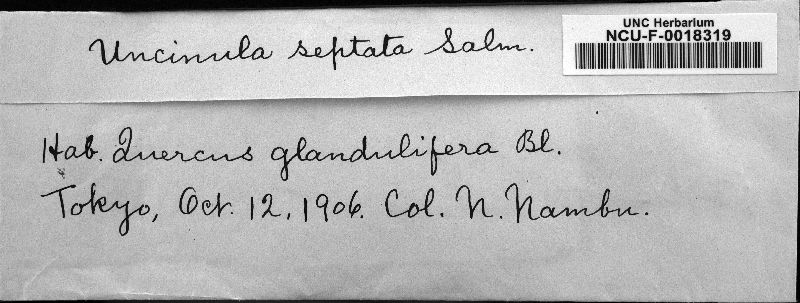 Uncinula septata Salm.
UNC Herbarium
NCU-F-0018319
Hab. Quercus glandulifera Bl.
Tokyo, Oct. 12, 1906. Col. N. Nambu.